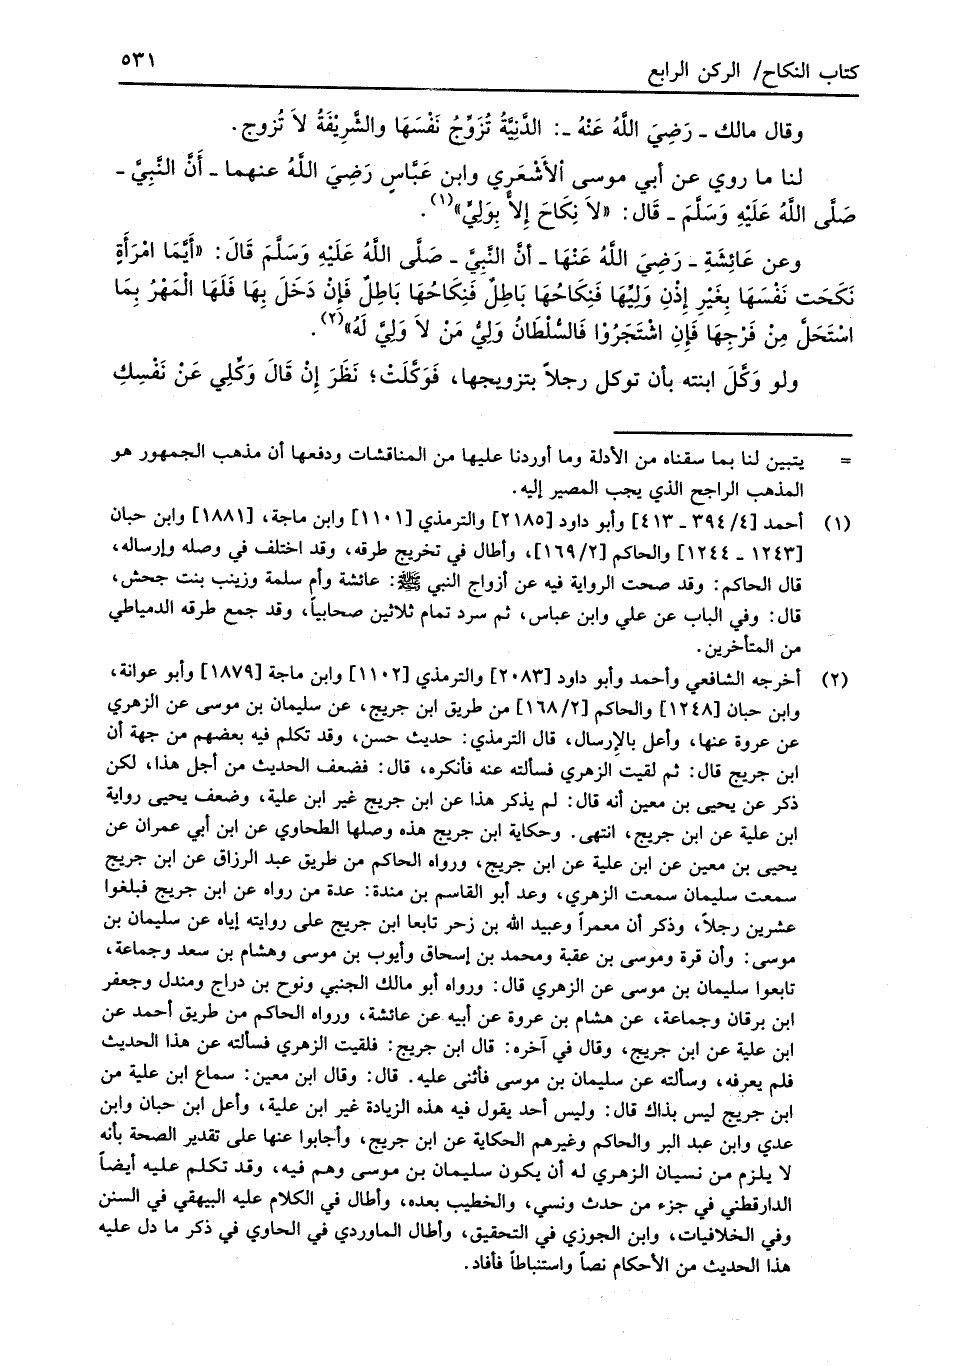 ٥٣١
كتاب النكاح/ الركن الرابع
وقال مالك ـ رَضِيَ اللَّهُ عَنْهُ ـ: الدَّنِيَّةُ تُزَوِّجُ نَفْسَهَا والشَّرِيفَةُ لاَ تُزوج.
لنا ما روي عن أبي موسى ألأَشْعَرِي وابن عَبَّاسٍ رَضِيَ اللَّهُ عنهما ـ أَنَّ النَّبِيَّ ـ
صَلَّى اللَّهُ عَلَيْهِ وَسَلَّمَ ـ قال: «لاَ نِكَاحَ إِلاَّ بِوَلِيٍّ»(١).
وعن عَائِشَةِ ـ رَضِيَ اللَّهُ عَنْهَا ـ أنَّ النَّبِيَّ ـ صَلَّى اللَّهُ عَلَيْهِ وَسَلَّمَ قَالَ: «أَيَّمَا امْرَأَةٍ
نَكَحَت نَفْسَهَا بِغَيْرِ إِذْنِ وَلِيِّهَا فَنِكَاحُهَا بَاطِلٌ فَنِكَاحُهَا بَاطِلٌ فَإِنْ دَخَلَ بِهَا فَلَهَا الْمَهْرُ بِمَا
اسْتَحَلَّ مِنْ فَرْجِهَا فَإِنِ اشْتَجَرُوْا فَالسُّلْطَانُ وَلِيُّ مَنْ لاَ وَلِيَّ لَهُ»(٢).
ولو وَكَّلَ ابنته بأن توكل رجلاً بتزويجها، فَوَكَّلَتْ؛ نَظَرَ إِنْ قَالَ وَكِّلِي عَنْ نَفْسِكِ
= يتبين لنا بما سقناه من الأدلة وما أوردنا عليها من المناقشات ودفعها أن مذهب الجمهور هو
المذهب الراجح الذي يجب المصير إليه.
(١) أحمد [٤/ ٣٩٤ ـ ٤١٣] وأبو داود [٢١٨٥] والترمذي [١١٠١] وابن ماجة، [١٨٨١] وابن حبان
[١٢٤٣ ـ ١٢٤٤] والحاكم [١٦٩/٢]، وأطال في تخريج طرقه، وقد اختلف في وصله وإرساله،
قال الحاكم: وقد صحت الرواية فيه عن أزواج النبي ﷺ: عائشة وأم سلمة وزينب بنت جحش،
قال: وفي الباب عن علي وابن عباس، ثم سرد تمام ثلاثين صحابياً، وقد جمع طرقه الدمياطي
من المتأخرين.
(٢) أخرجه الشافعي وأحمد وأبو داود [٢٠٨٣] والترمذي [١١٠٢] وابن ماجة [١٨٧٩] وأبو عوانة،
وابن حبان [١٢٤٨] والحاكم [١٦٨/٢] من طريق ابن جريج، عن سليمان بن موسى عن الزهري
عن عروة عنها، وأعل بالإرسال، قال الترمذي: حديث حسن، وقد تكلم فيه بعضهم من جهة أن
ابن جريج قال: ثم لقيت الزهري فسألته عنه فأنكره، قال: فضعف الحديث من أجل هذا، لكن
ذكر عن يحيى بن معين أنه قال: لم يذكر هذا عن ابن جريج غير ابن علية، وضعف يحيى رواية
ابن علية عن ابن جريج، انتهى. وحكاية ابن جريج هذه وصلها الطحاوي عن ابن أبي عمران عن
يحيى بن معين عن ابن علية عن ابن جريج، ورواه الحاكم من طريق عبد الرزاق عن ابن جريج
سمعت سليمان سمعت الزهري، وعد أبو القاسم بن مندة: عدة من رواه عن ابن جريج فبلغوا
عشرين رجلاً، وذكر أن معمراً وعبيد الله بن زحر تابعا ابن جريج على روايته إياه عن سليمان بن
موسى: وأن قرة وموسى بن عقبة ومحمد بن إسحاق وأيوب بن موسى وهشام بن سعد وجماعة،
تابعوا سليمان بن موسى عن الزهري قال: ورواه أبو مالك الجنبي ونوح بن دراج ومندل وجعفر
ابن برقان وجماعة، عن هشام بن عروة عن أبيه عن عائشة، ورواه الحاكم من طريق أحمد عن
ابن علية عن ابن جريج، وقال في آخره: قال ابن جريج: فلقيت الزهري فسألته عن هذا الحديث
فلم يعرفه، وسألته عن سليمان بن موسى فأثنى عليه. قال: وقال ابن معين: سماع ابن علية من
ابن جريج ليس بذاك قال: وليس أحد يقول فيه هذه الزيادة غير ابن علية، وأعل ابن حبان وابن
عدي وابن عبد البر والحاكم وغيرهم الحكاية عن ابن جريج، وأجابوا عنها على تقدير الصحة بأنه
لا يلزم من نسيان الزهري له أن يكون سليمان بن موسى وهم فيه، وقد تكلم عليه أيضاً
الدارقطني في جزء من حدث ونسي، والخطيب بعده، وأطال في الكلام عليه البيهقي في السنن
وفي الخلافيات، وابن الجوزي في التحقيق، وأطال الماوردي في الحاوي في ذكر ما دل عليه
هذا الحديث من الأحكام نصاً واستنباطاً فأفاد.